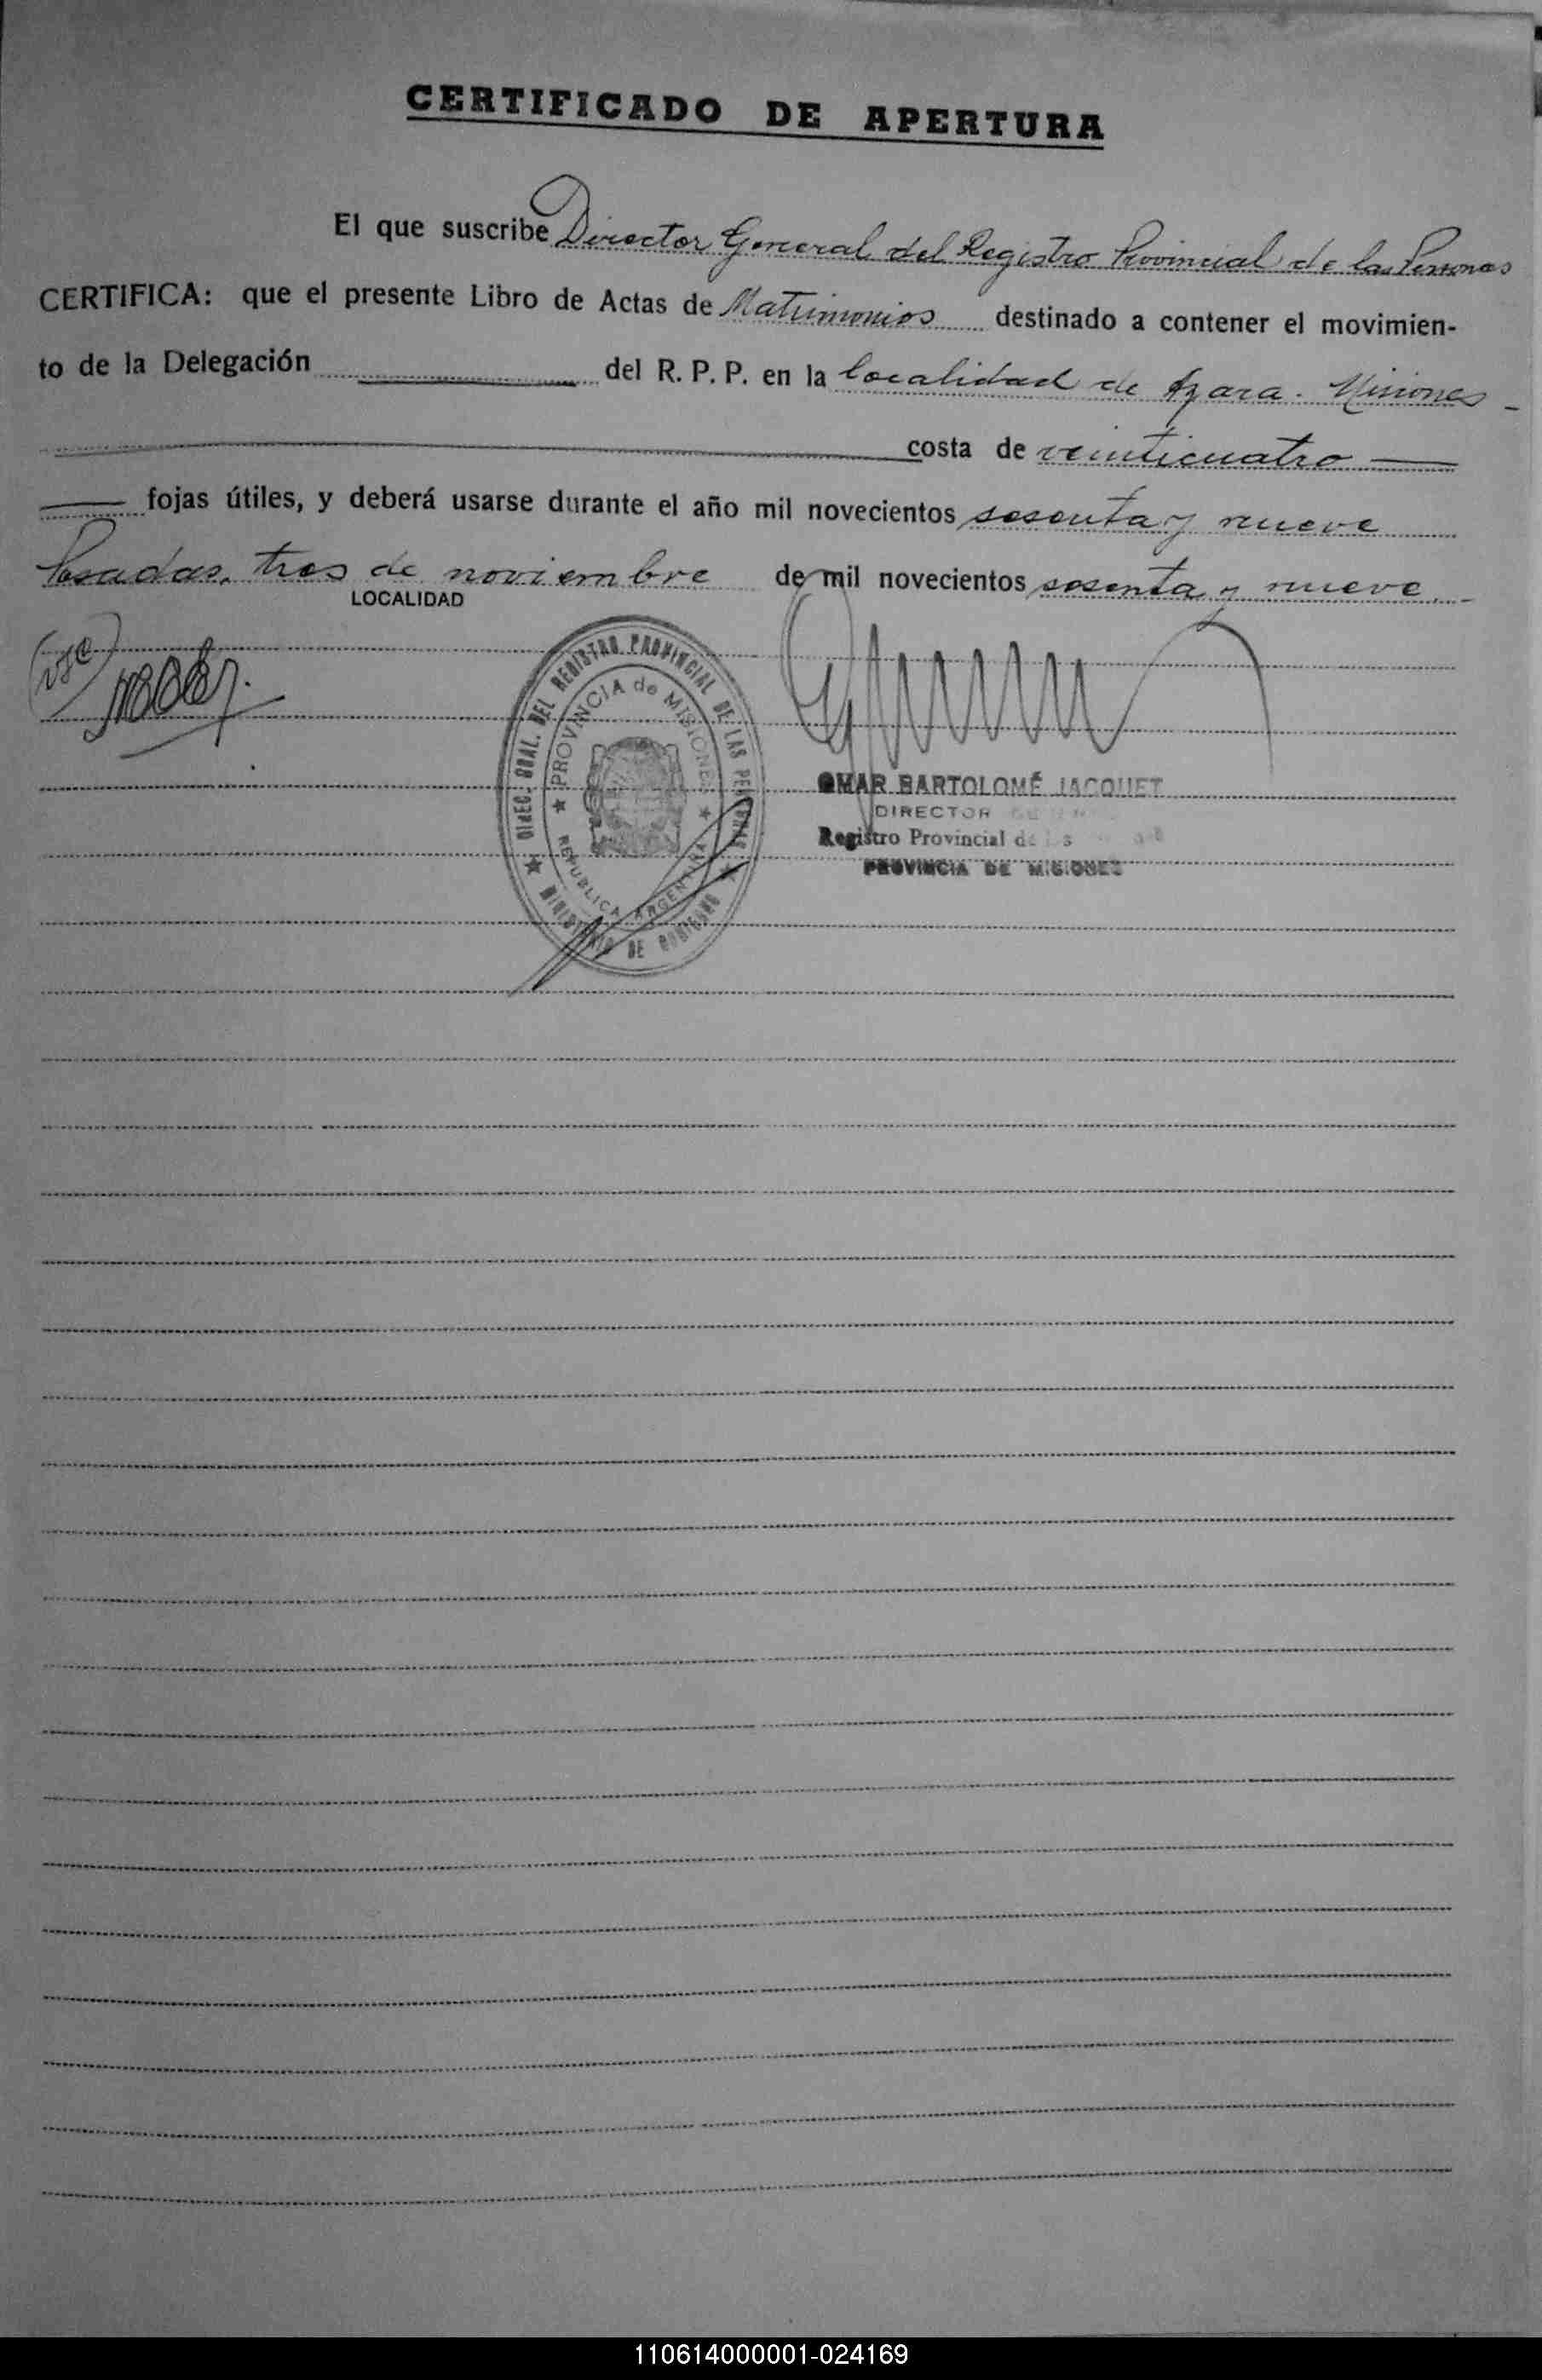 CERTIFICADO DE APERTURA
El que suscribe Director General del Registro Provincial de las Personas
CERTIFICA: que el presente Libro de Actas de Matrimonios destinado a contener el movimien-
to de la Delegación del R. P. P. en la localidad de Azara. Misiones -
costa de veinticuatro
fojas útiles, y deberá usarse durante el año mil novecientos sesenta y nueve
Posadas, tres de noviembre de mil novecientos sesenta y nueve.-
LOCALIDAD
DIREC. GRAL. DEL REGISTRO PROVINCIAL DE LAS PERSONAS
PROVINCIA de MISIONES
REPUBLICA ARGENTINA
MINISTERIO DE GOBIERNO
OMAR BARTOLOMÉ JACQUET
DIRECTOR
Registro Provincial de
PROVINCIA DE MISIONES
110614000001-024169